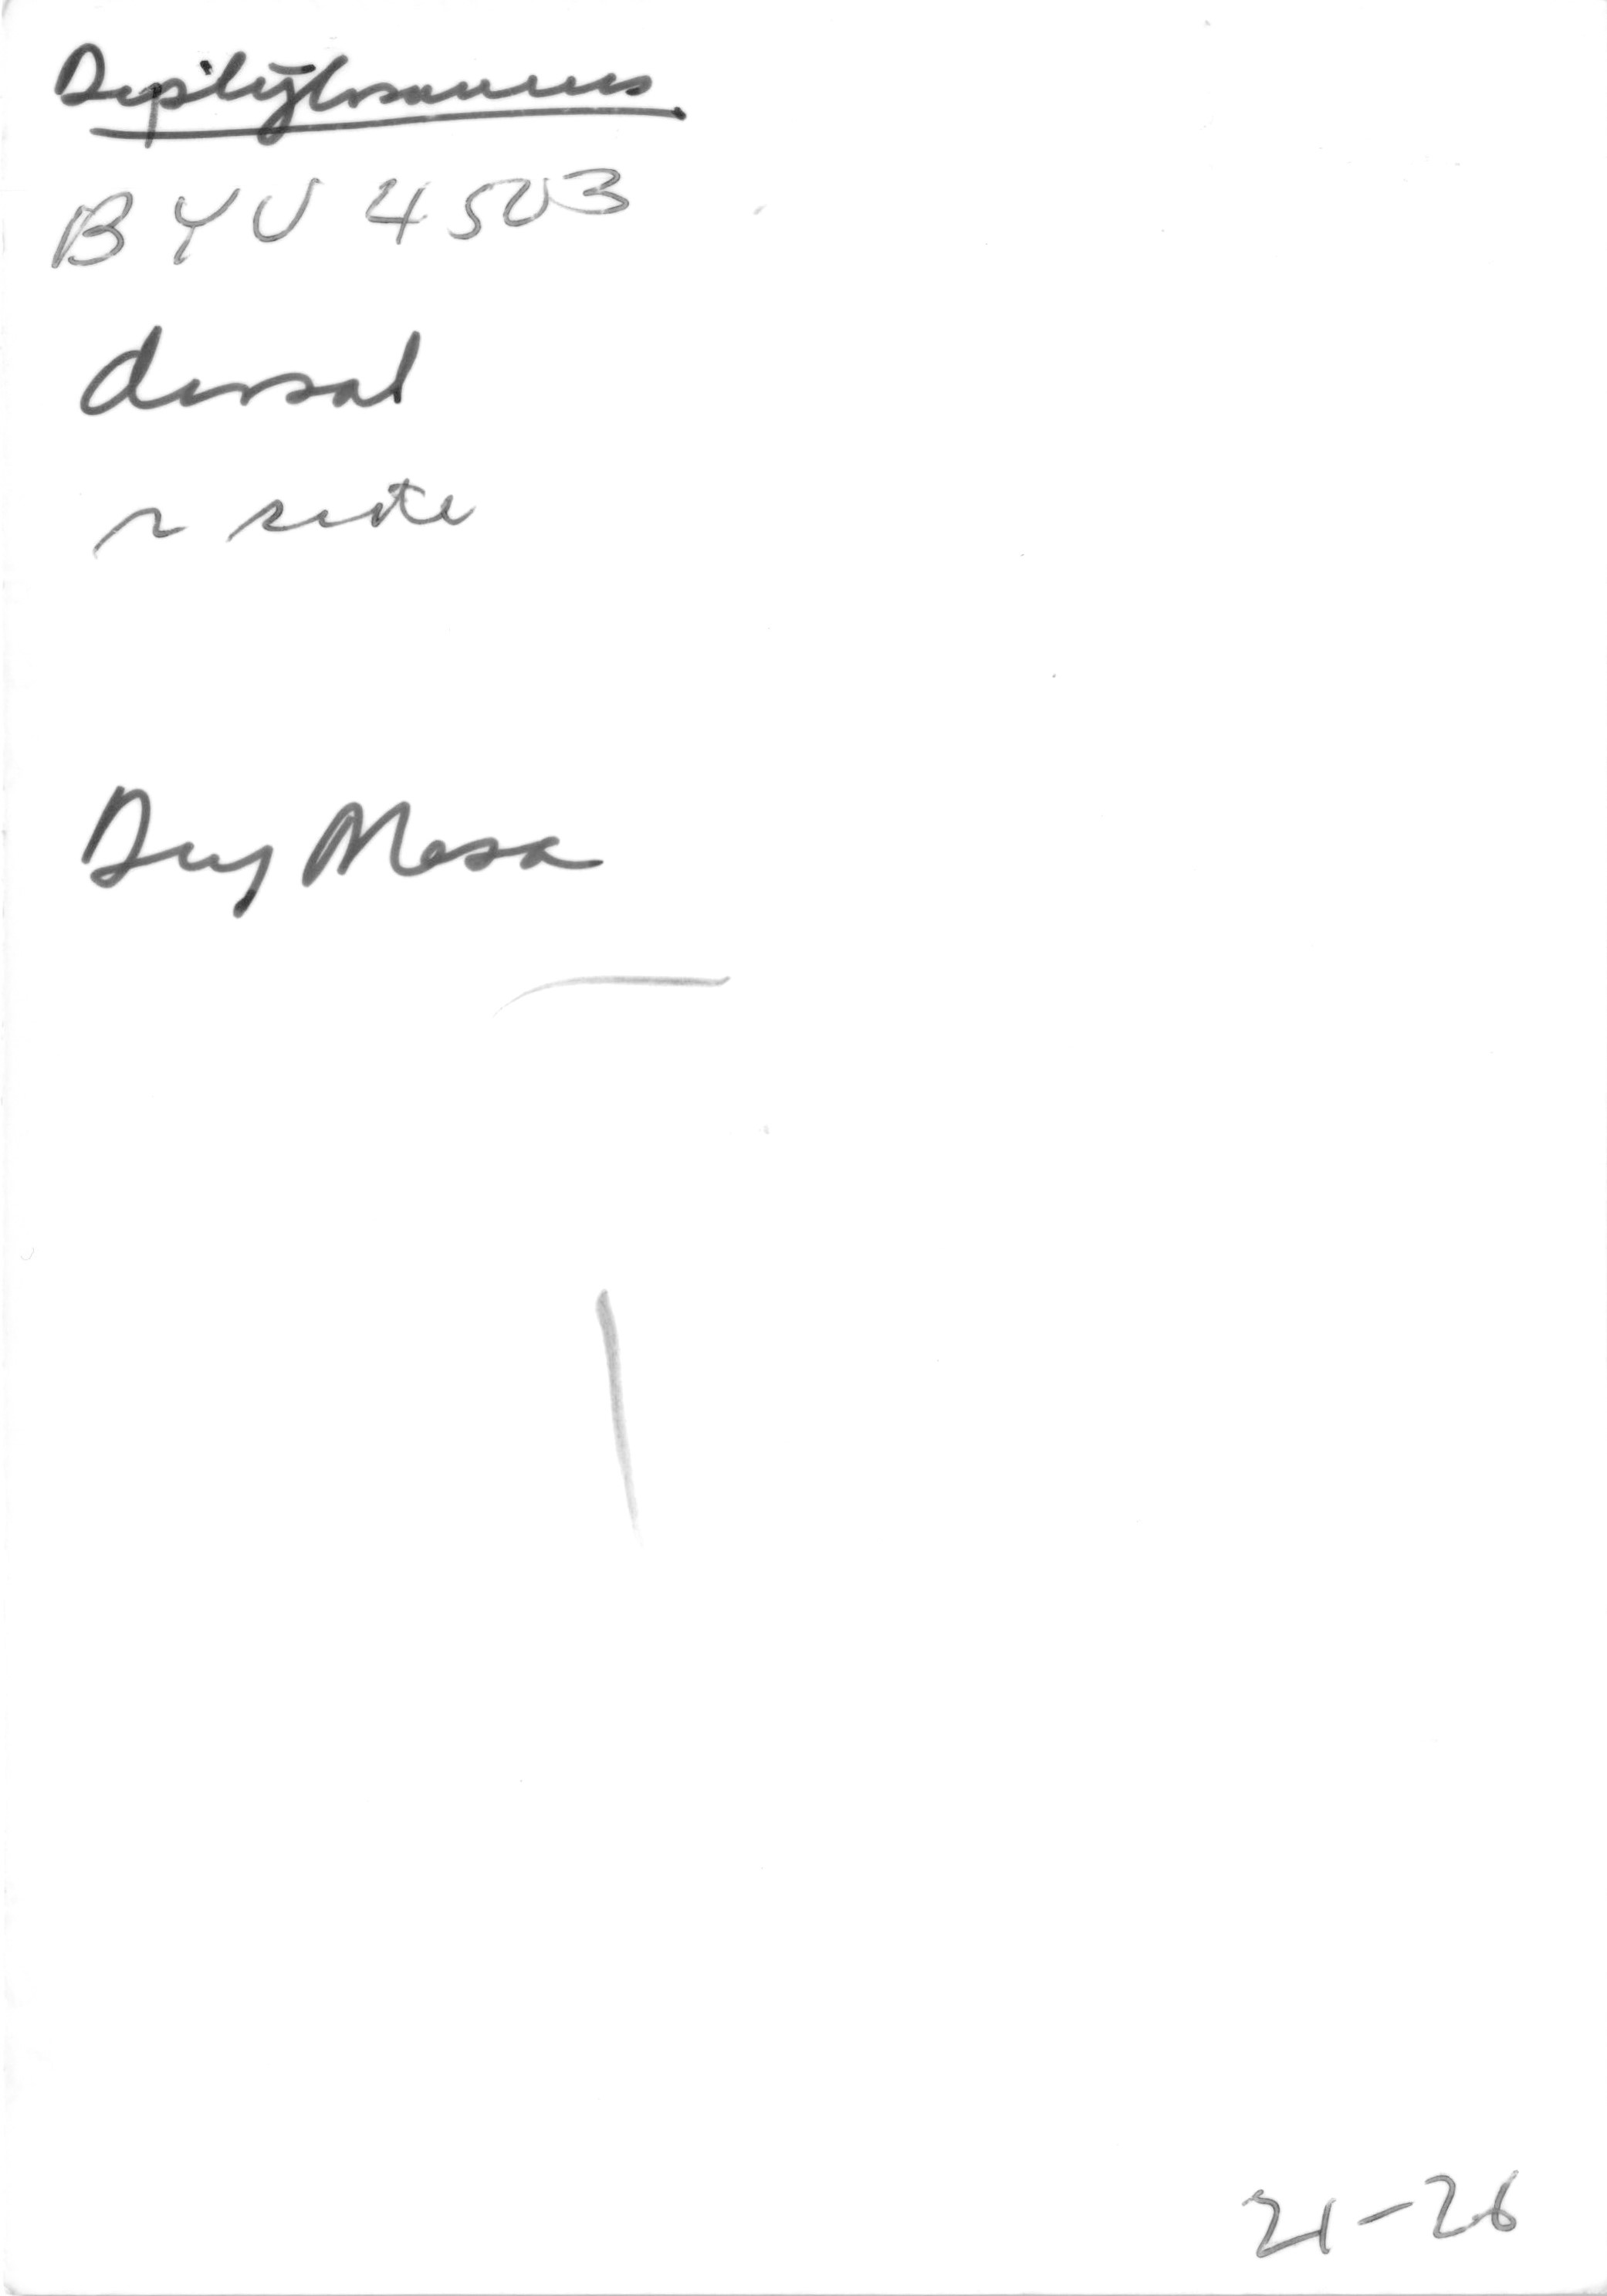 Dystylosaurus
BYU 4503
dorsal
r side
Dry Mesa
21-26